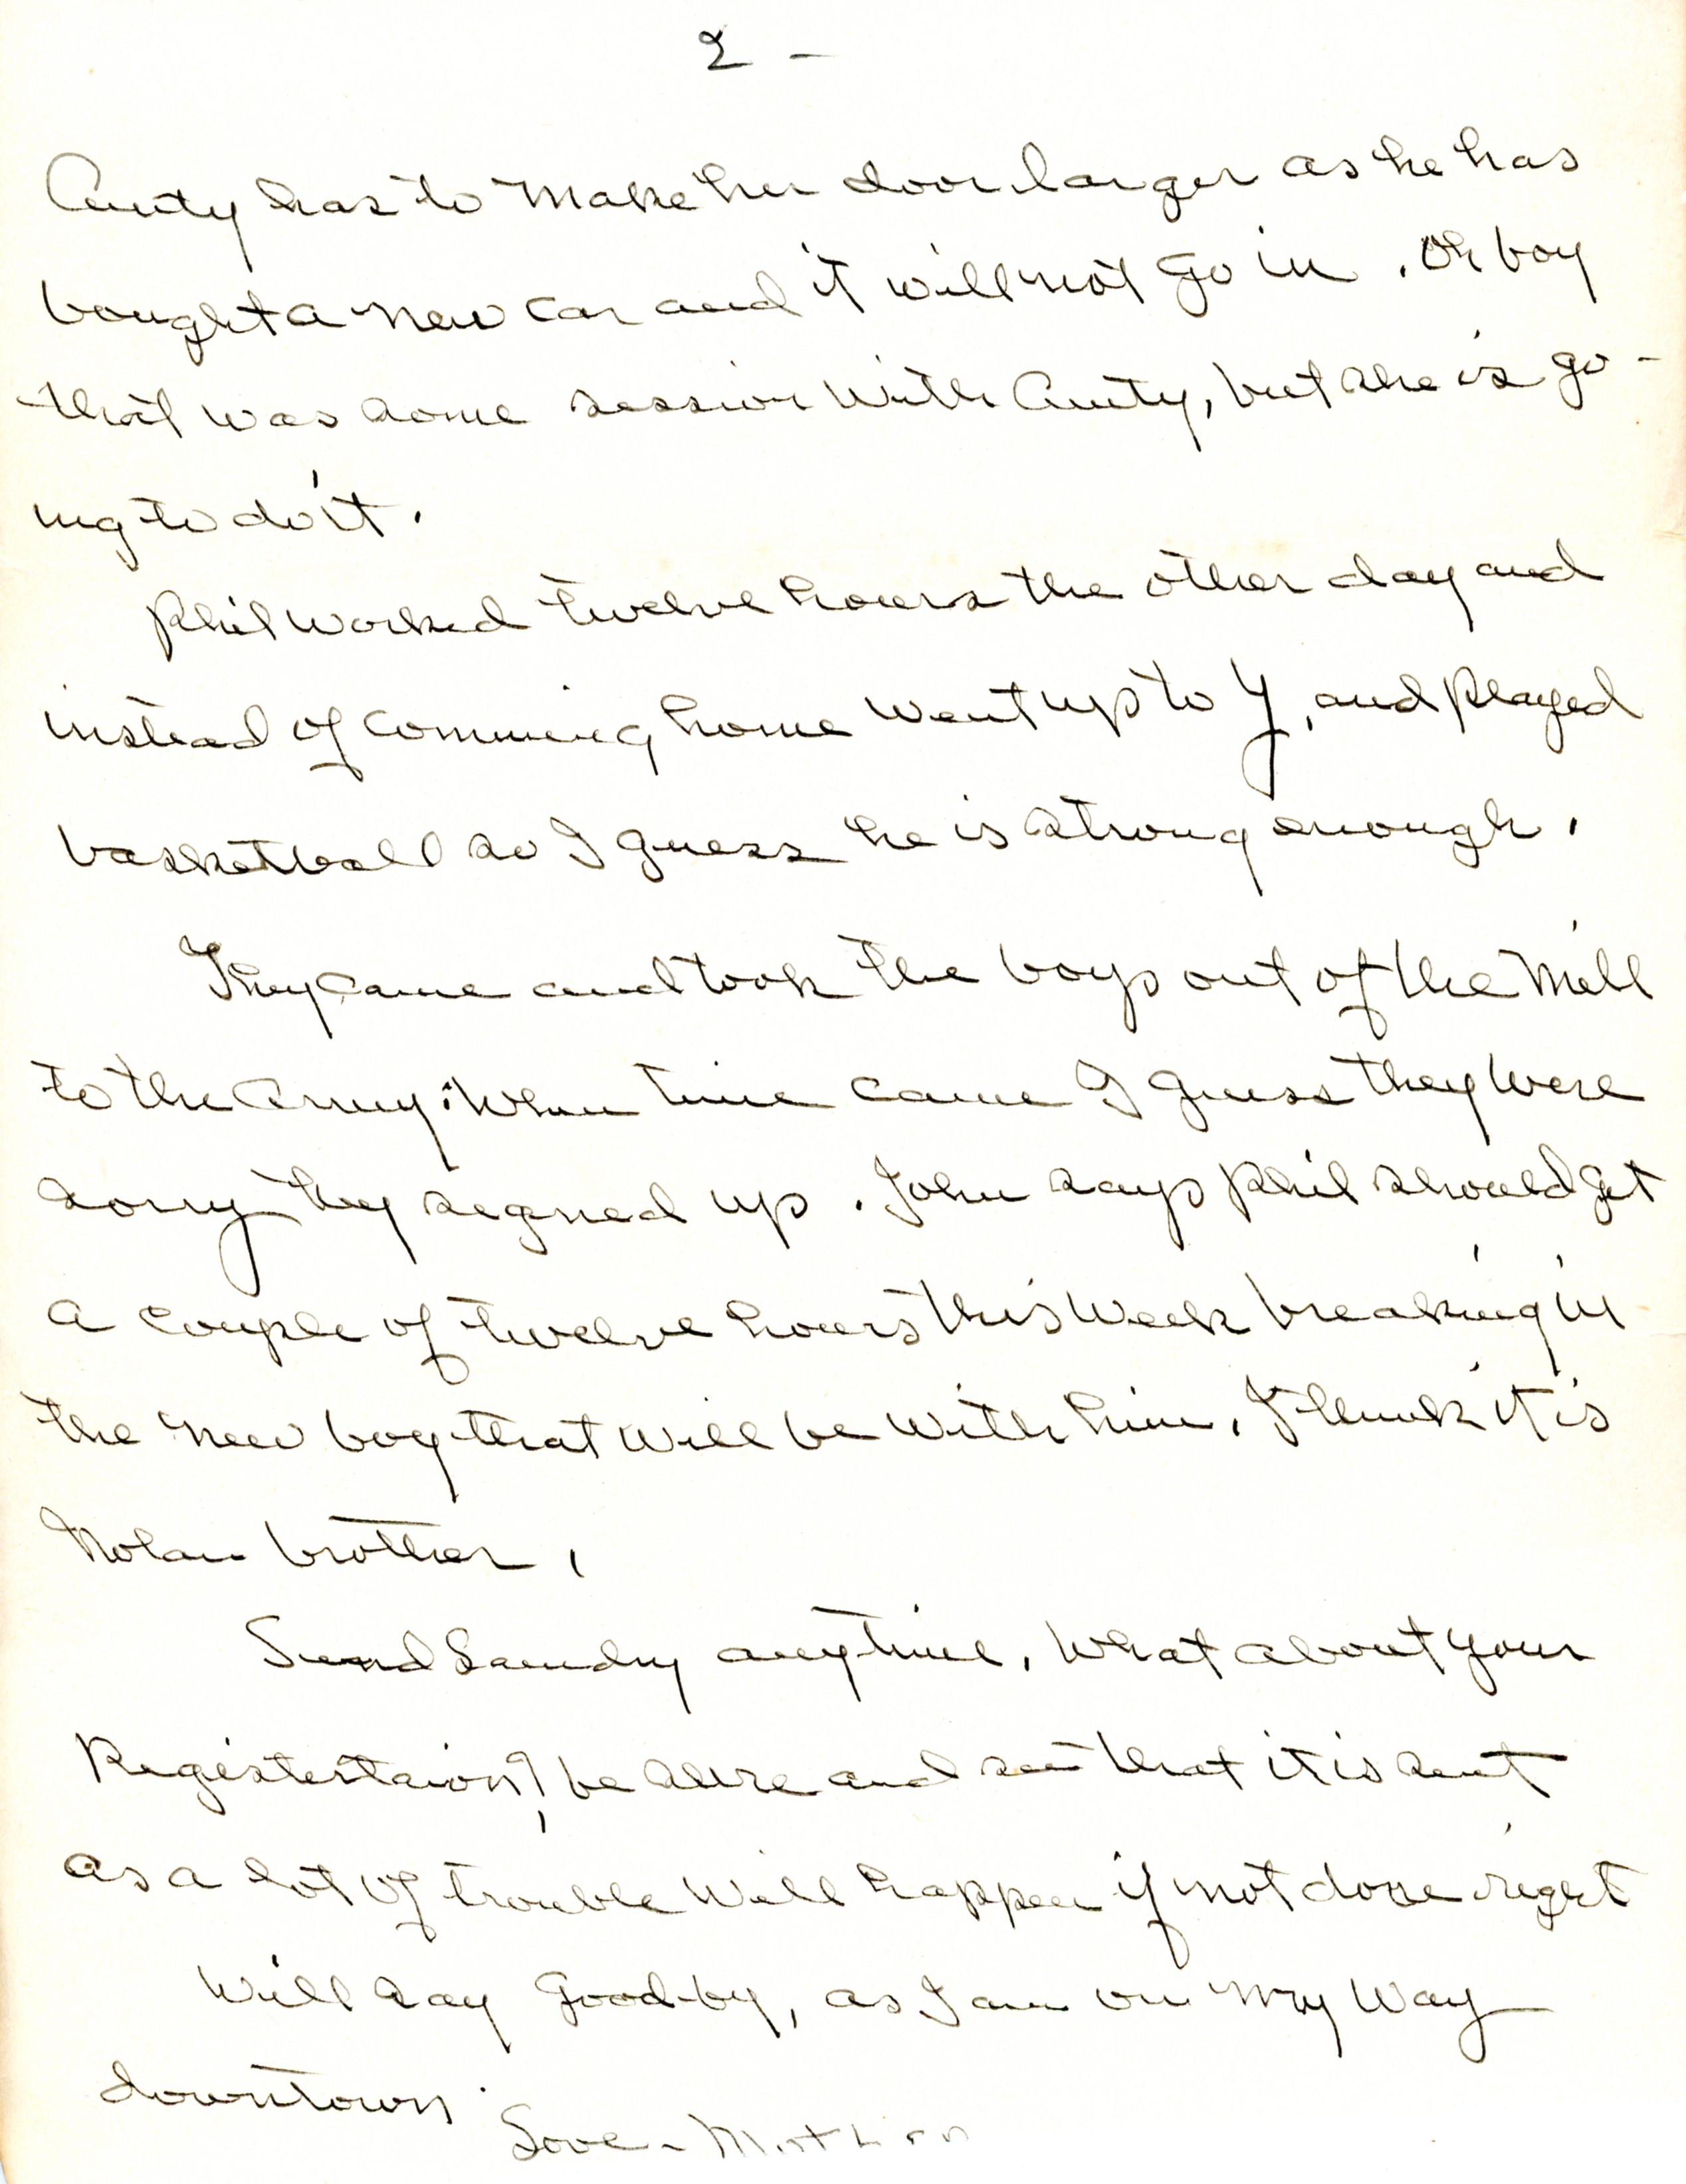 2 -
Aunty has to make her door larger as he has
bought a new car and it will not go in. Oh boy
that was some session with Aunty, but she is go-
ing to do it.
Phil worked twelve hours the other day and
instead of comming home went up to Y, and played
basketball so I guess he is strong enough.
They came and took the boys out of the Mill
to the Army: When time came I guess they were
sorry they signed up. John says Phil should get
a couple of twelve hours this week breaking in
the new boy that will be with him. I think it is
Nolan brother.
Send Laundry anytime. What about your
Registertaion? be sure and see that it is sent
as a lot of trouble will happen if not done right
Will say Good-by, as I am on my way
downtown.
Love - Mother